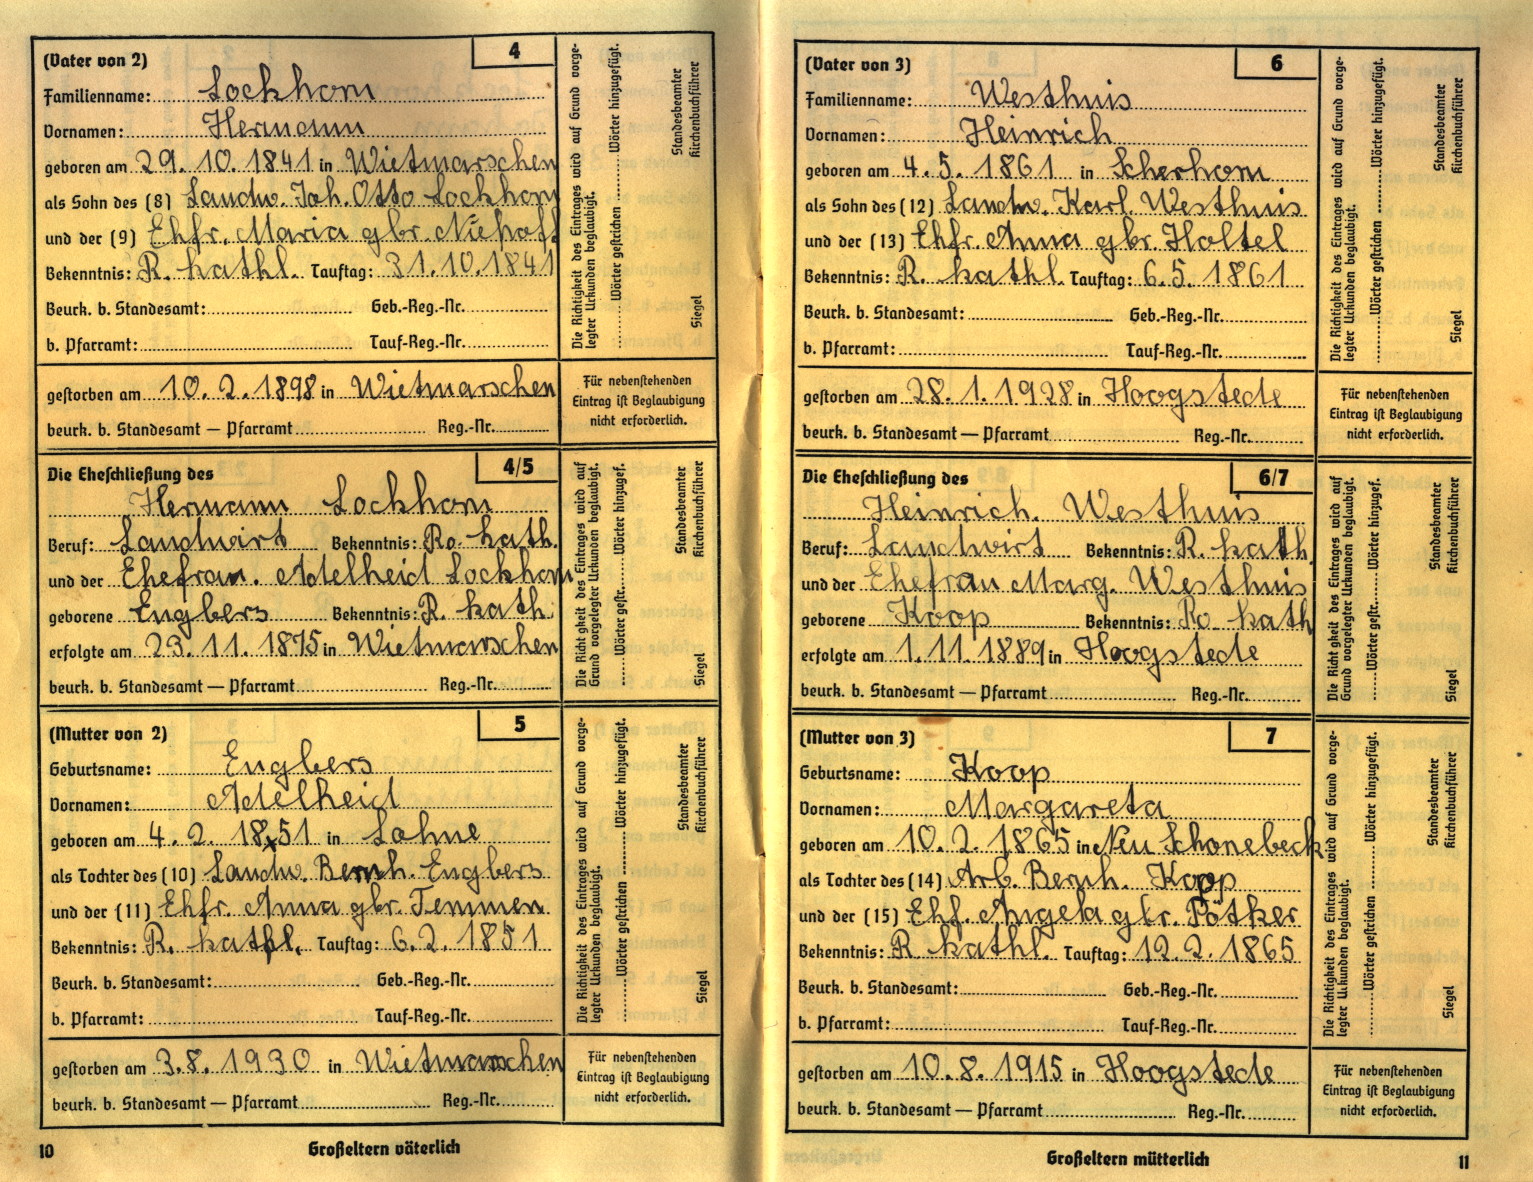 (Vater von 2)
4
Familienname: Lockhorn
Vornamen: Hermann
geboren am 29. 10. 1841 in Wietmarschen
als Sohn des (8) Landw. Joh. Otto Lockhorn
und der (9) Ehfr. Maria gbr. Niehoff
Bekenntnis: R. kathl. Tauftag: 31.10.1841
Beurk. b. Standesamt: Geb.-Reg.-Nr.
b. Pfarramt: Tauf-Reg.-Nr.
Die Richtigkeit des Eintrages wird auf Grund vorge-
legter Urkunden beglaubigt.
Wörter gestrichen Wörter hinzugefügt.
Siegel Standesbeamter
Kirchenbuchführer
gestorben am 10. 2. 1898 in Wietmarschen
beurk. b. Standesamt — Pfarramt Reg.-Nr.
Für nebenstehenden
Eintrag ist Beglaubigung
nicht erforderlich.
Die Eheschließung des
4/5
Hermann Lockhorn
Beruf: Landwirt Bekenntnis: Ro. kath.
und der Ehefrau. Adelheid Lockhorn
geborene Engbers Bekenntnis: R. kath.
erfolgte am 23. 11. 1875 in Wietmarschen
beurk. b. Standesamt — Pfarramt Reg.-Nr.
Die Richt gkeit des Eintrages wird auf
Grund vorgelegter Urkunden beglaubigt.
Wörter gestr. Wörter hinzugef.
Siegel Standesbeamter
Kirchenbuchführer
(Mutter von 2)
5
Geburtsname: Engbers
Vornamen: Adelheid
geboren am 4. 2. 1851 in Lohne
als Tochter des (10) Landw. Bernh. Engbers
und der (11) Ehfr. Anna gbr. Temmen
Bekenntnis: R. kathl. Tauftag: 6. 2. 1851
Beurk. b. Standesamt: Geb.-Reg.-Nr.
b. Pfarramt: Tauf-Reg.-Nr.
Die Richtigkeit des Eintrages wird auf Grund vorge-
legter Urkunden beglaubigt.
Wörter gestrichen Wörter hinzugefügt.
Siegel Standesbeamter
Kirchenbuchführer
gestorben am 3. 8. 1930 in Wietmarschen
beurk. b. Standesamt — Pfarramt Reg.-Nr.
Für nebenstehenden
Eintrag ist Beglaubigung
nicht erforderlich.
10
Großeltern väterlich
(Vater von 3)
6
Familienname: Westhuis
Vornamen: Heinrich
geboren am 4. 5. 1861 in Scherhorn
als Sohn des (12) Landw. Karl. Westhuis
und der (13) Ehfr. Anna gbr. Holtel
Bekenntnis: R. kathl. Tauftag: 6.5. 1861
Beurk. b. Standesamt: Geb.-Reg.-Nr.
b. Pfarramt: Tauf-Reg.-Nr.
Die Richtigkeit des Eintrages wird auf Grund vorge-
legter Urkunden beglaubigt.
Wörter gestrichen Wörter hinzugefügt.
Siegel Standesbeamter
Kirchenbuchführer
gestorben am 28. 1. 1928 in Hoogstede
beurk. b. Standesamt — Pfarramt Reg.-Nr.
Für nebenstehenden
Eintrag ist Beglaubigung
nicht erforderlich.
Die Eheschließung des
6/7
Heinrich. Westhuis
Beruf: Landwirt Bekenntnis: R. kath.
und der Ehefrau Marg. Westhuis
geborene Koop Bekenntnis: Ro. kath
erfolgte am 1. 11. 1889 in Hoogstede
beurk. b. Standesamt — Pfarramt Reg.-Nr.
Die Richt gkeit des Eintrages wird auf
Grund vorgelegter Urkunden beglaubigt.
Wörter gestr. Wörter hinzugef.
Siegel Standesbeamter
Kirchenbuchführer
(Mutter von 3)
7
Geburtsname: Koop
Vornamen: Margareta
geboren am 10. 2. 1865 in Neu Schonebeck
als Tochter des (14) Arb. Bernh. Koop
und der (15) Ehf. Angela gbr. Pötker
Bekenntnis: R kathl. Tauftag: 12. 2. 1865
Beurk. b. Standesamt: Geb.-Reg.-Nr.
b. Pfarramt: Tauf-Reg.-Nr.
Die Richtigkeit des Eintrages wird auf Grund vorge-
legter Urkunden beglaubigt.
Wörter gestrichen Wörter hinzugefügt.
Siegel Standesbeamter
Kirchenbuchführer
gestorben am 10. 8. 1915 in Hoogstede
beurk. b. Standesamt — Pfarramt Reg.-Nr.
Für nebenstehenden
Eintrag ist Beglaubigung
nicht erforderlich.
Großeltern mütterlich
11